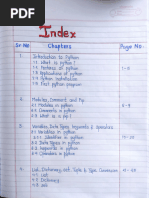 Index
Sr No Chapters Page No.
1. Introduction to Python
1.1 What is python?
1.2 Features of python 1-3
1.3 Applications of python
1.4 Python installation
1.5 First python program
2. Modules, Comment and Pip
2.1 Modules in python 4-5
2.2 Comments in python
2.3 What is pip?
3. Variables, Data Types, keywords & operators
3.1 Variables in python
3.2 Identifier in python
3.3 Data types in python
3.4 keywords in python
3.5 Operators in python
4. List, Dictionary, set, Tuple & Type Conversion
4.1 List
4.2 Dictionary
4.3 set